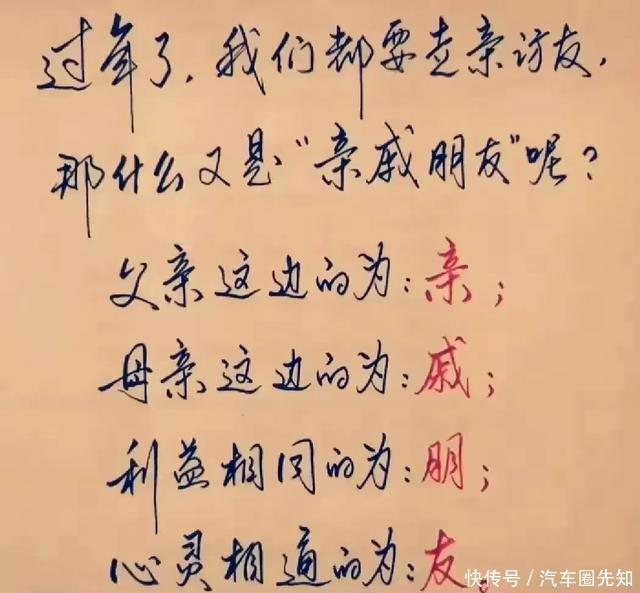 过年了，我们都要走亲访友，
那什么又是“亲戚朋友”呢？
父亲这边的为：亲；
母亲这边的为：戚；
利益相同的为：朋；
心灵相通的为：友。
快传号／汽车圈先知